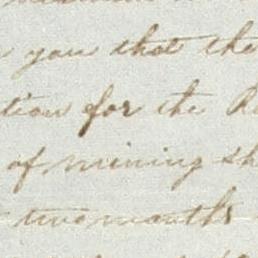 you that the
tion for the
of mining sh
two months